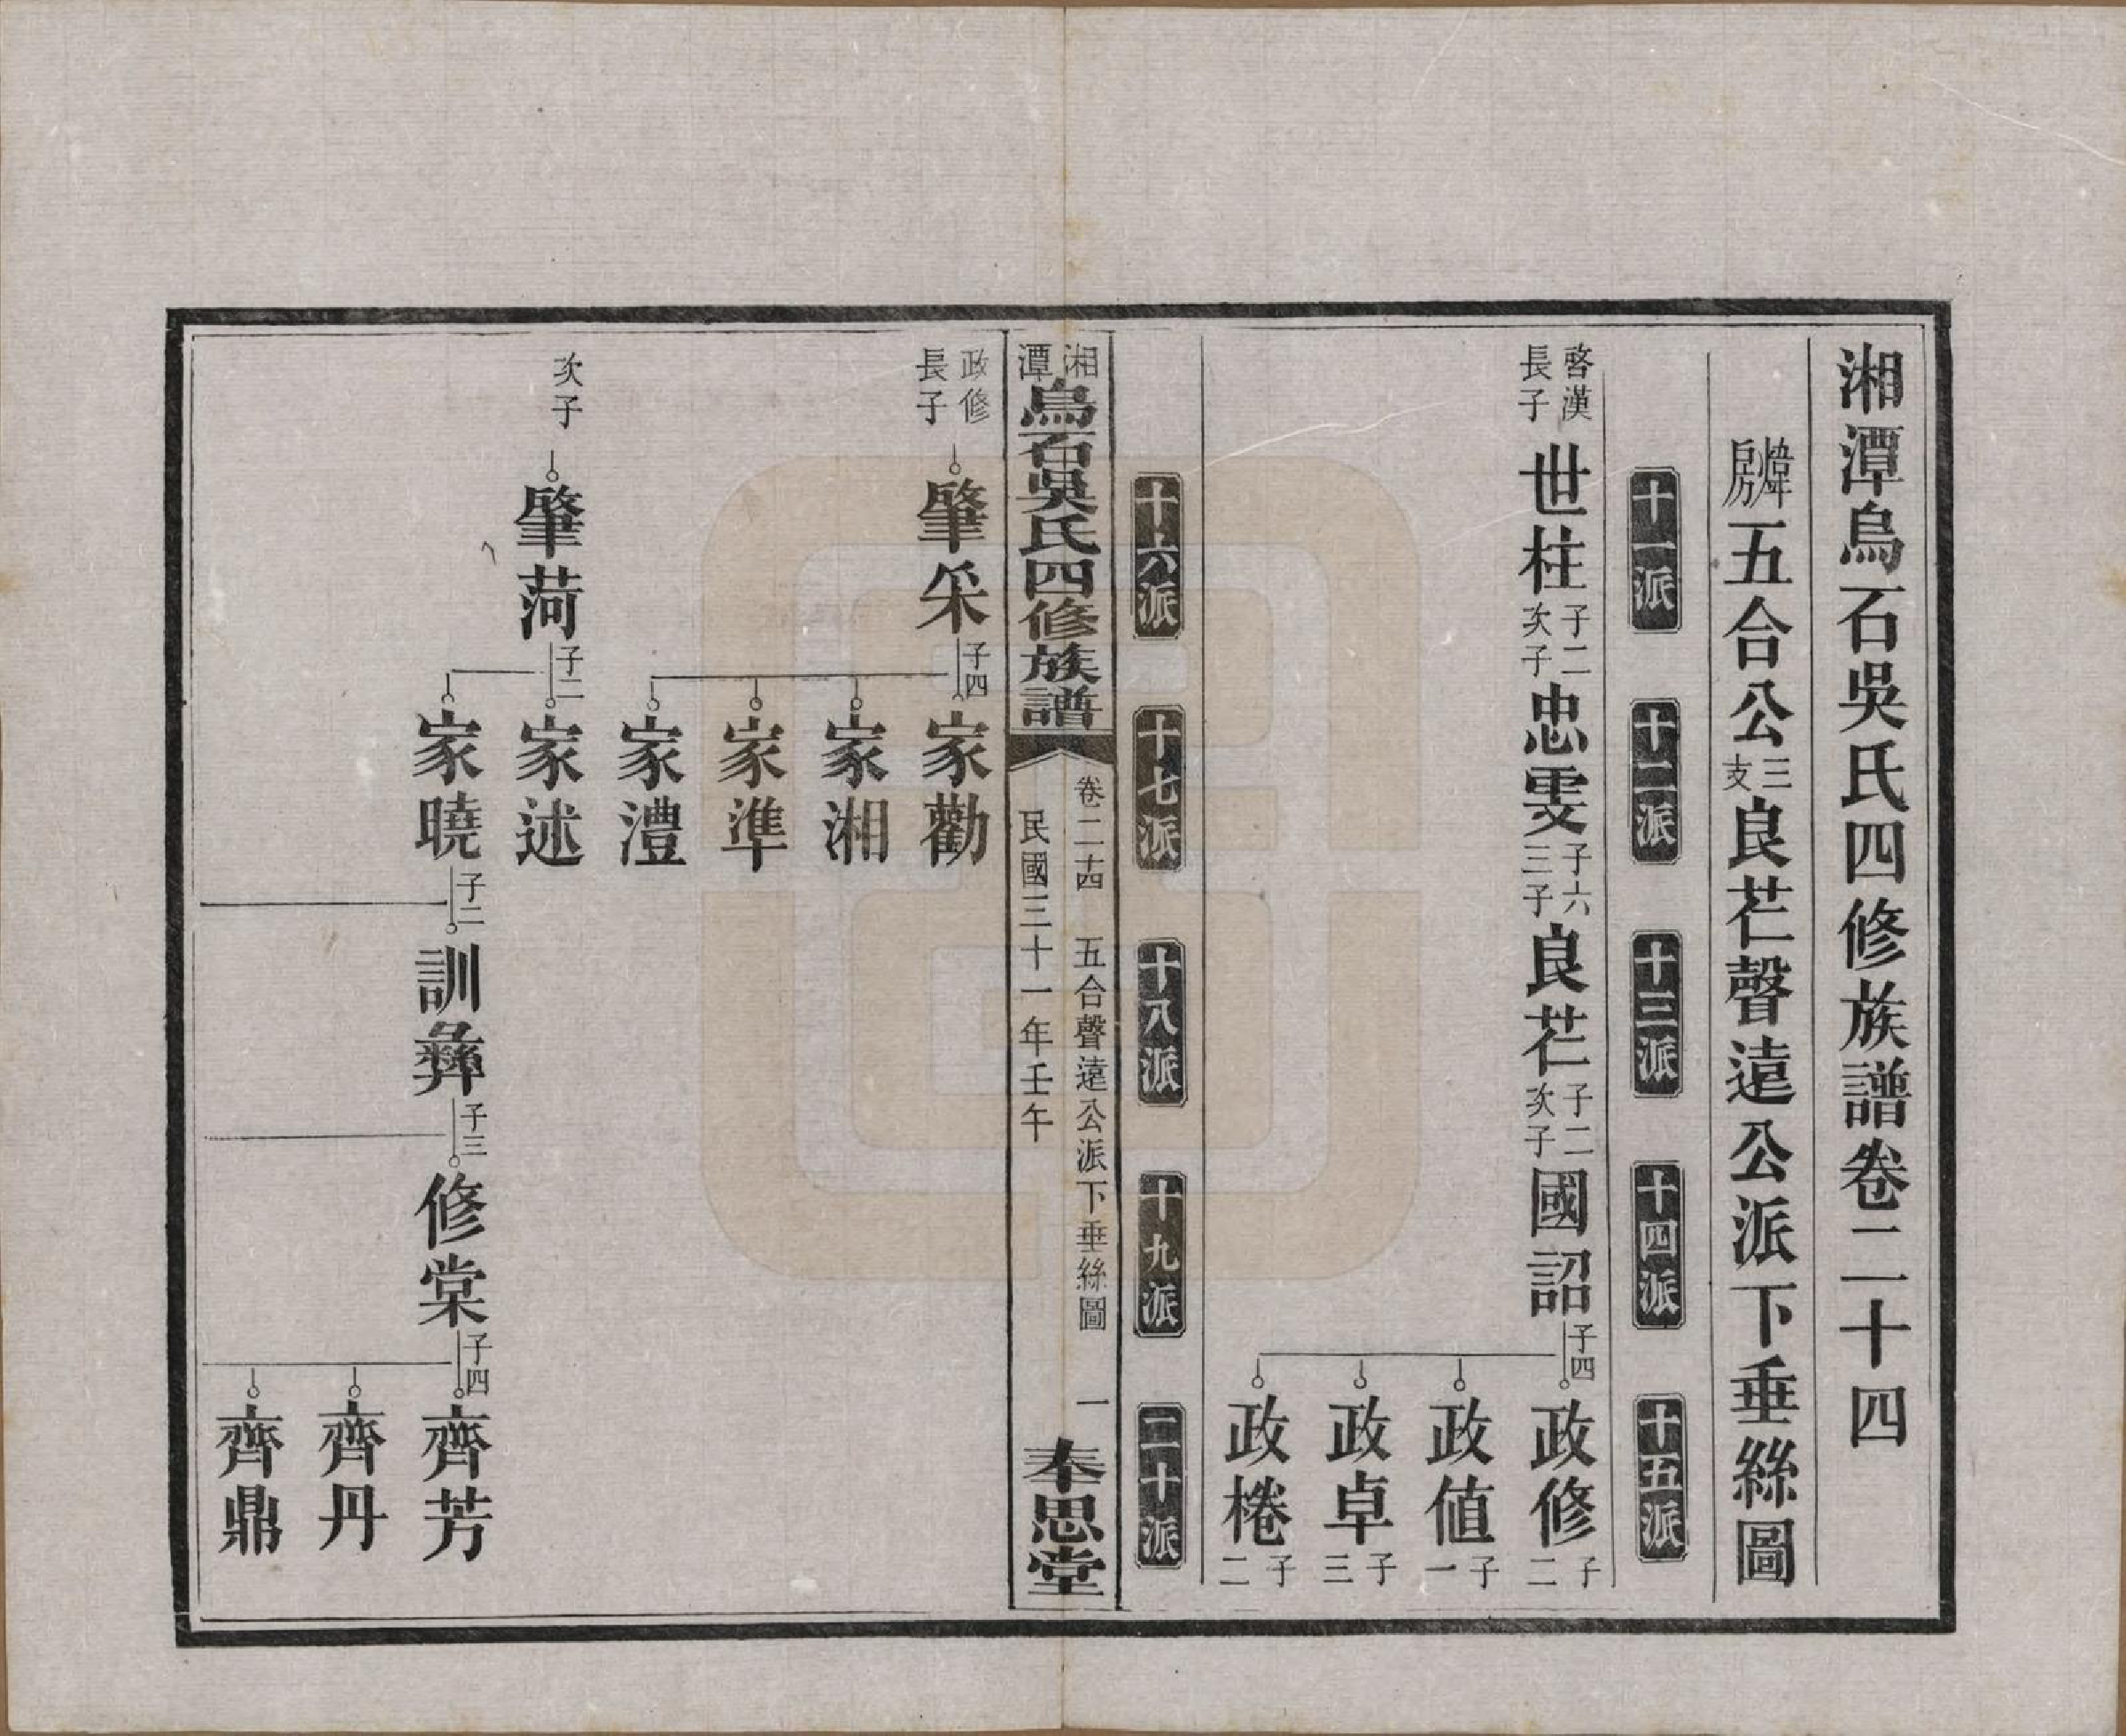 湘潭烏石吳氏四修族譜卷二十四
煒房五合公三支良芢聲遠公派下垂絲圖
十一派 十二派 十三派 十四派 十五派
啓漢長子 世柱 子二次子 忠雯 子六三子 良芢 子二次子 國詔 子四 政修 子二
政值 子一
政卓 子三
政棬 子二
十六派 十七派 十八派 十九派 二十派
湘潭烏石吳氏四修族譜 卷二十四 五合聲遠公派下垂絲圖 一
民國三十一年壬午 奉思堂
政修長子 肇采 子四 家勸
家湘
家準
家澧
次子 肇菏 子二 家述
家曉 子二 訓彝 子三 修棠 子四 齊芳
齊丹
齊鼎